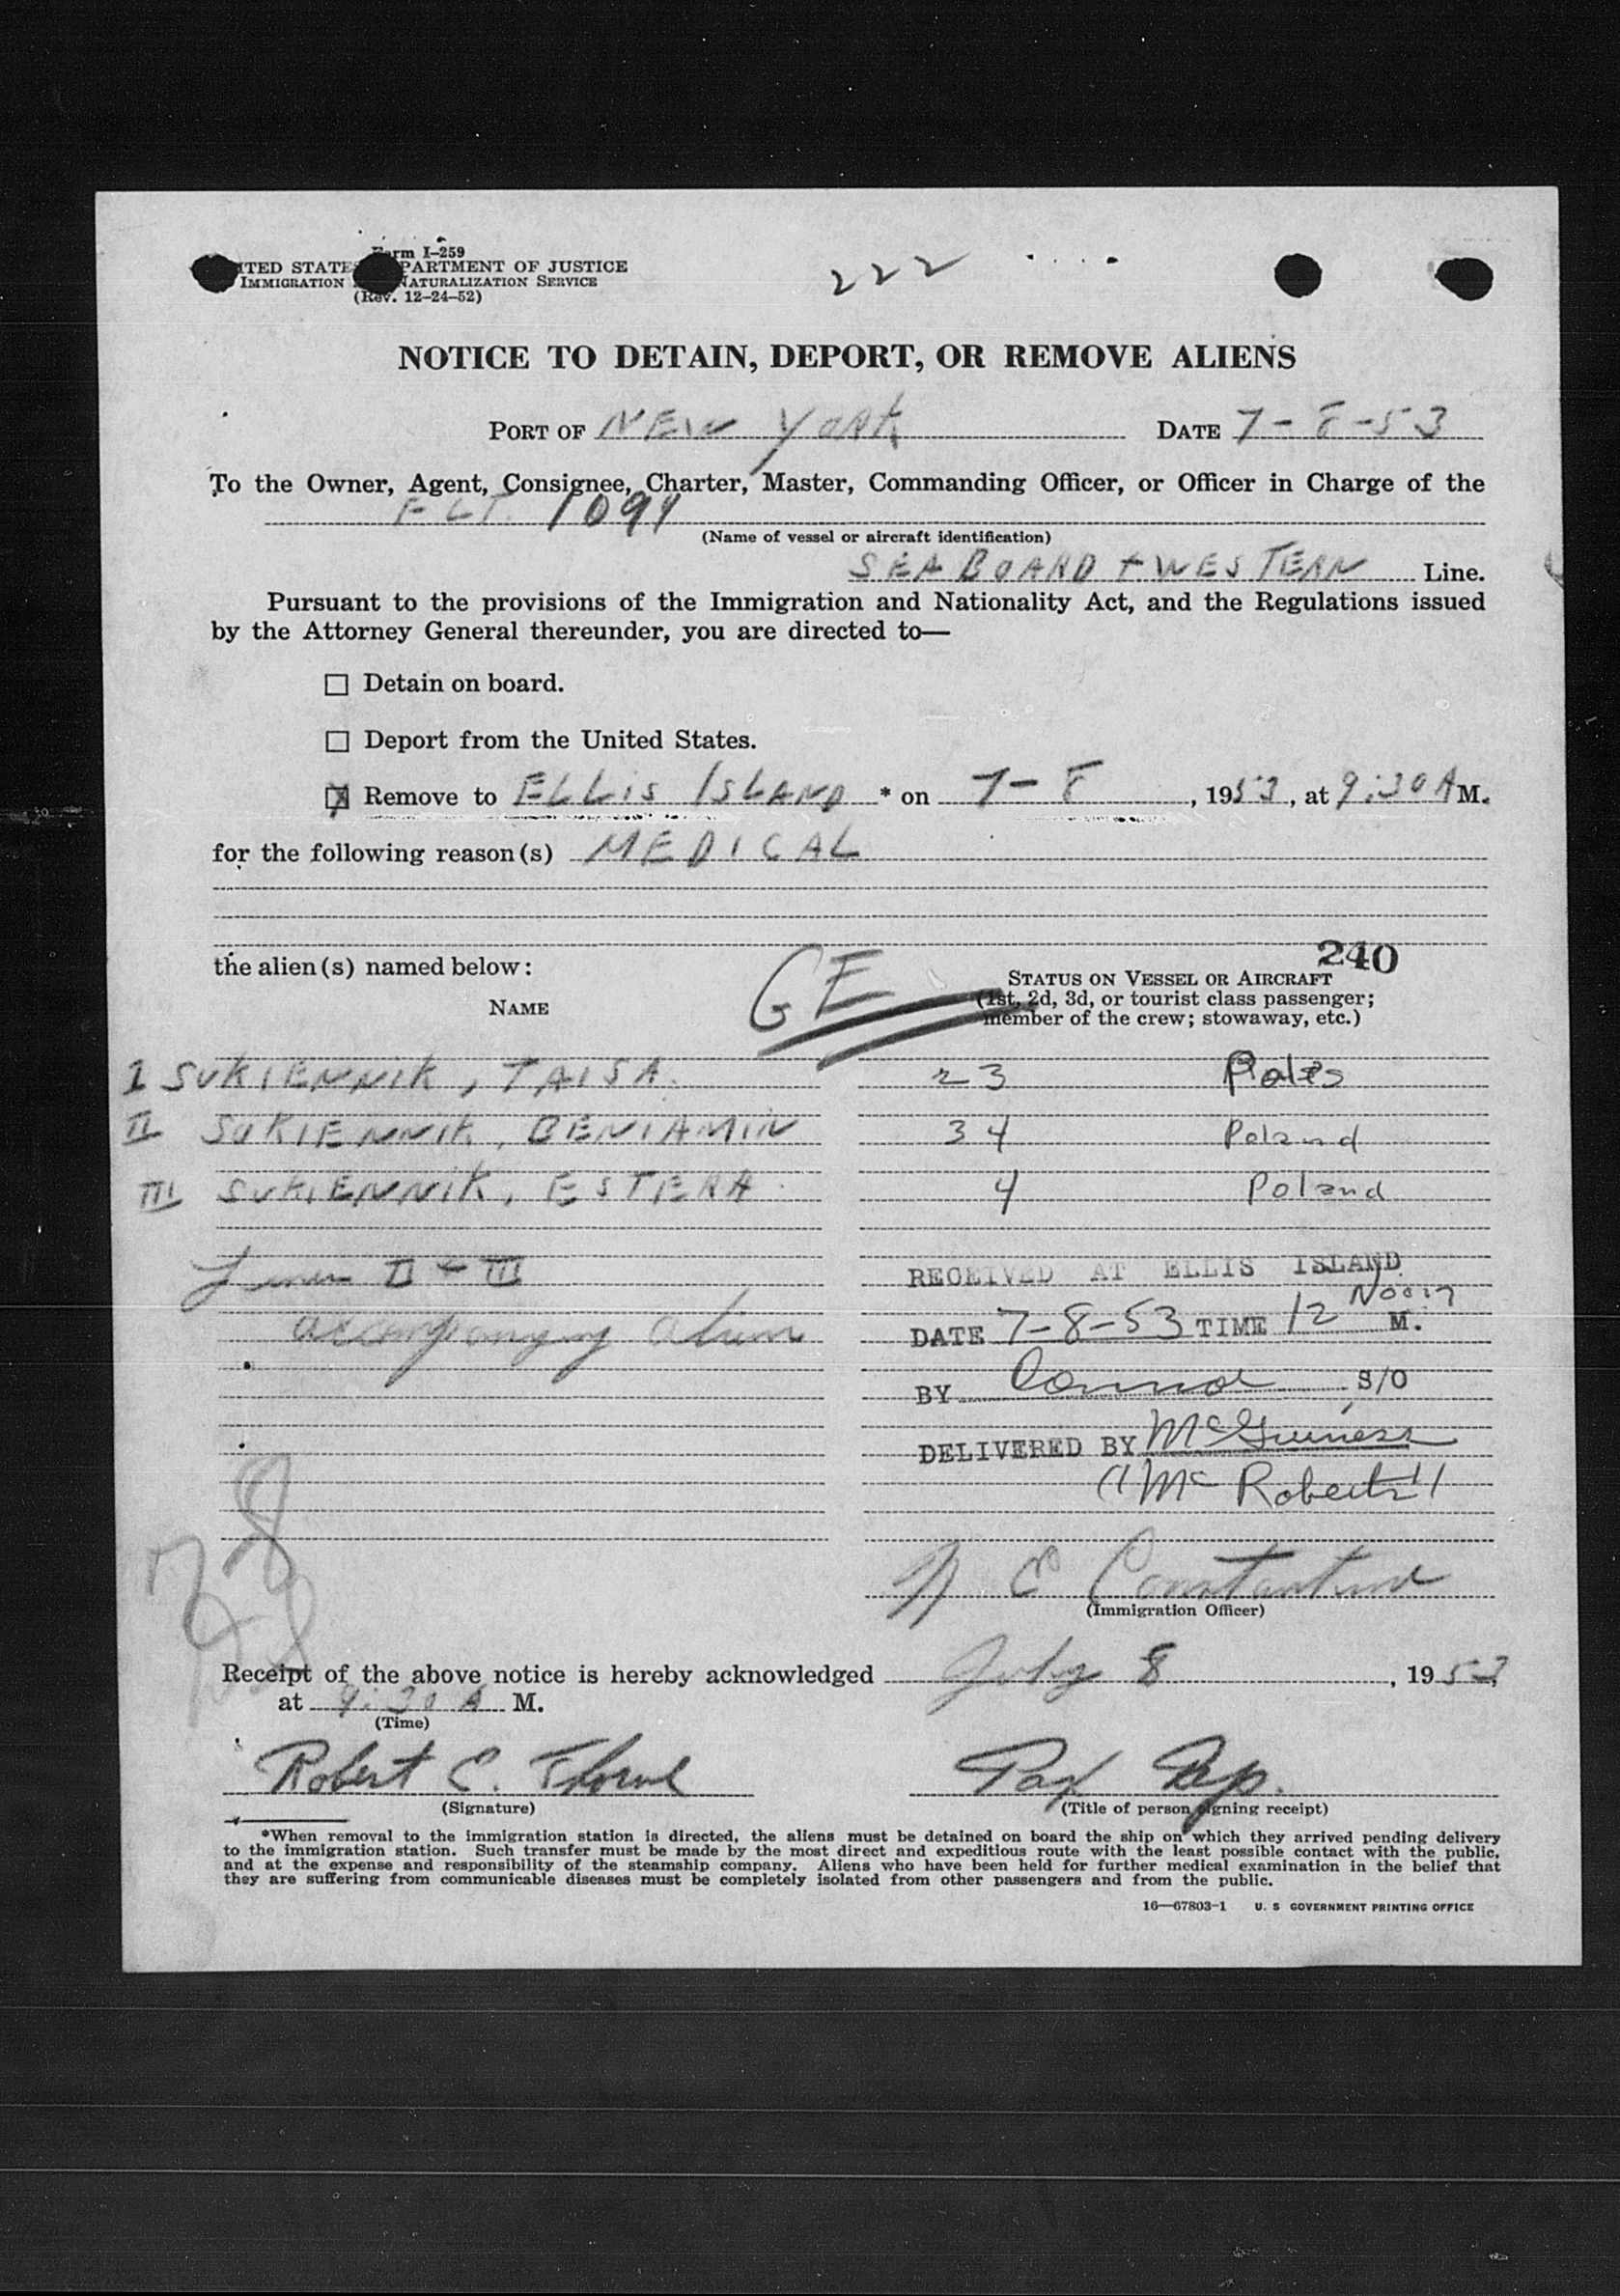 Form I-259
UNITED STATES DEPARTMENT OF JUSTICE
IMMIGRATION AND NATURALIZATION SERVICE
(Rev. 12-24-52)
222
NOTICE TO DETAIN, DEPORT, OR REMOVE ALIENS
PORT OF NEW YORK DATE 7-8-53
To the Owner, Agent, Consignee, Charter, Master, Commanding Officer, or Officer in Charge of the
FLT. 1094
(Name of vessel or aircraft identification)
SEABOARD + WESTERN Line.
Pursuant to the provisions of the Immigration and Nationality Act, and the Regulations issued
by the Attorney General thereunder, you are directed to—
☐ Detain on board.
☐ Deport from the United States.
☒ Remove to ELLIS ISLAND * on 7-8, 1953, at 9:30 A M.
for the following reason(s) MEDICAL
240
the alien(s) named below:
GE
STATUS ON VESSEL OR AIRCRAFT
(1st, 2d, 3d, or tourist class passenger;
member of the crew; stowaway, etc.)
NAME
I SUKIENNIK, TAISA. 23
II SUKIENNIK, BENIAMIN 34 Poland
III SUKIENNIK, ESTERA 4 Poland
Lines II + III
accompanying alien
RECEIVED AT ELLIS ISLAND
DATE 7-8-53 TIME 12 Noon M.
BY Connor S/O
DELIVERED BY McGuiness
"Mc Roberts"
N E Constantine
(Immigration Officer)
Receipt of the above notice is hereby acknowledged July 8, 1953
at 9:30 A M.
(Time)
Robert C. Thorne
(Signature)
(Title of person signing receipt)
*When removal to the immigration station is directed, the aliens must be detained on board the ship on which they arrived pending delivery
to the immigration station. Such transfer must be made by the most direct and expeditious route with the least possible contact with the public,
and at the expense and responsibility of the steamship company. Aliens who have been held for further medical examination in the belief that
they are suffering from communicable diseases must be completely isolated from other passengers and from the public.
16—67803-1 U. S GOVERNMENT PRINTING OFFICE